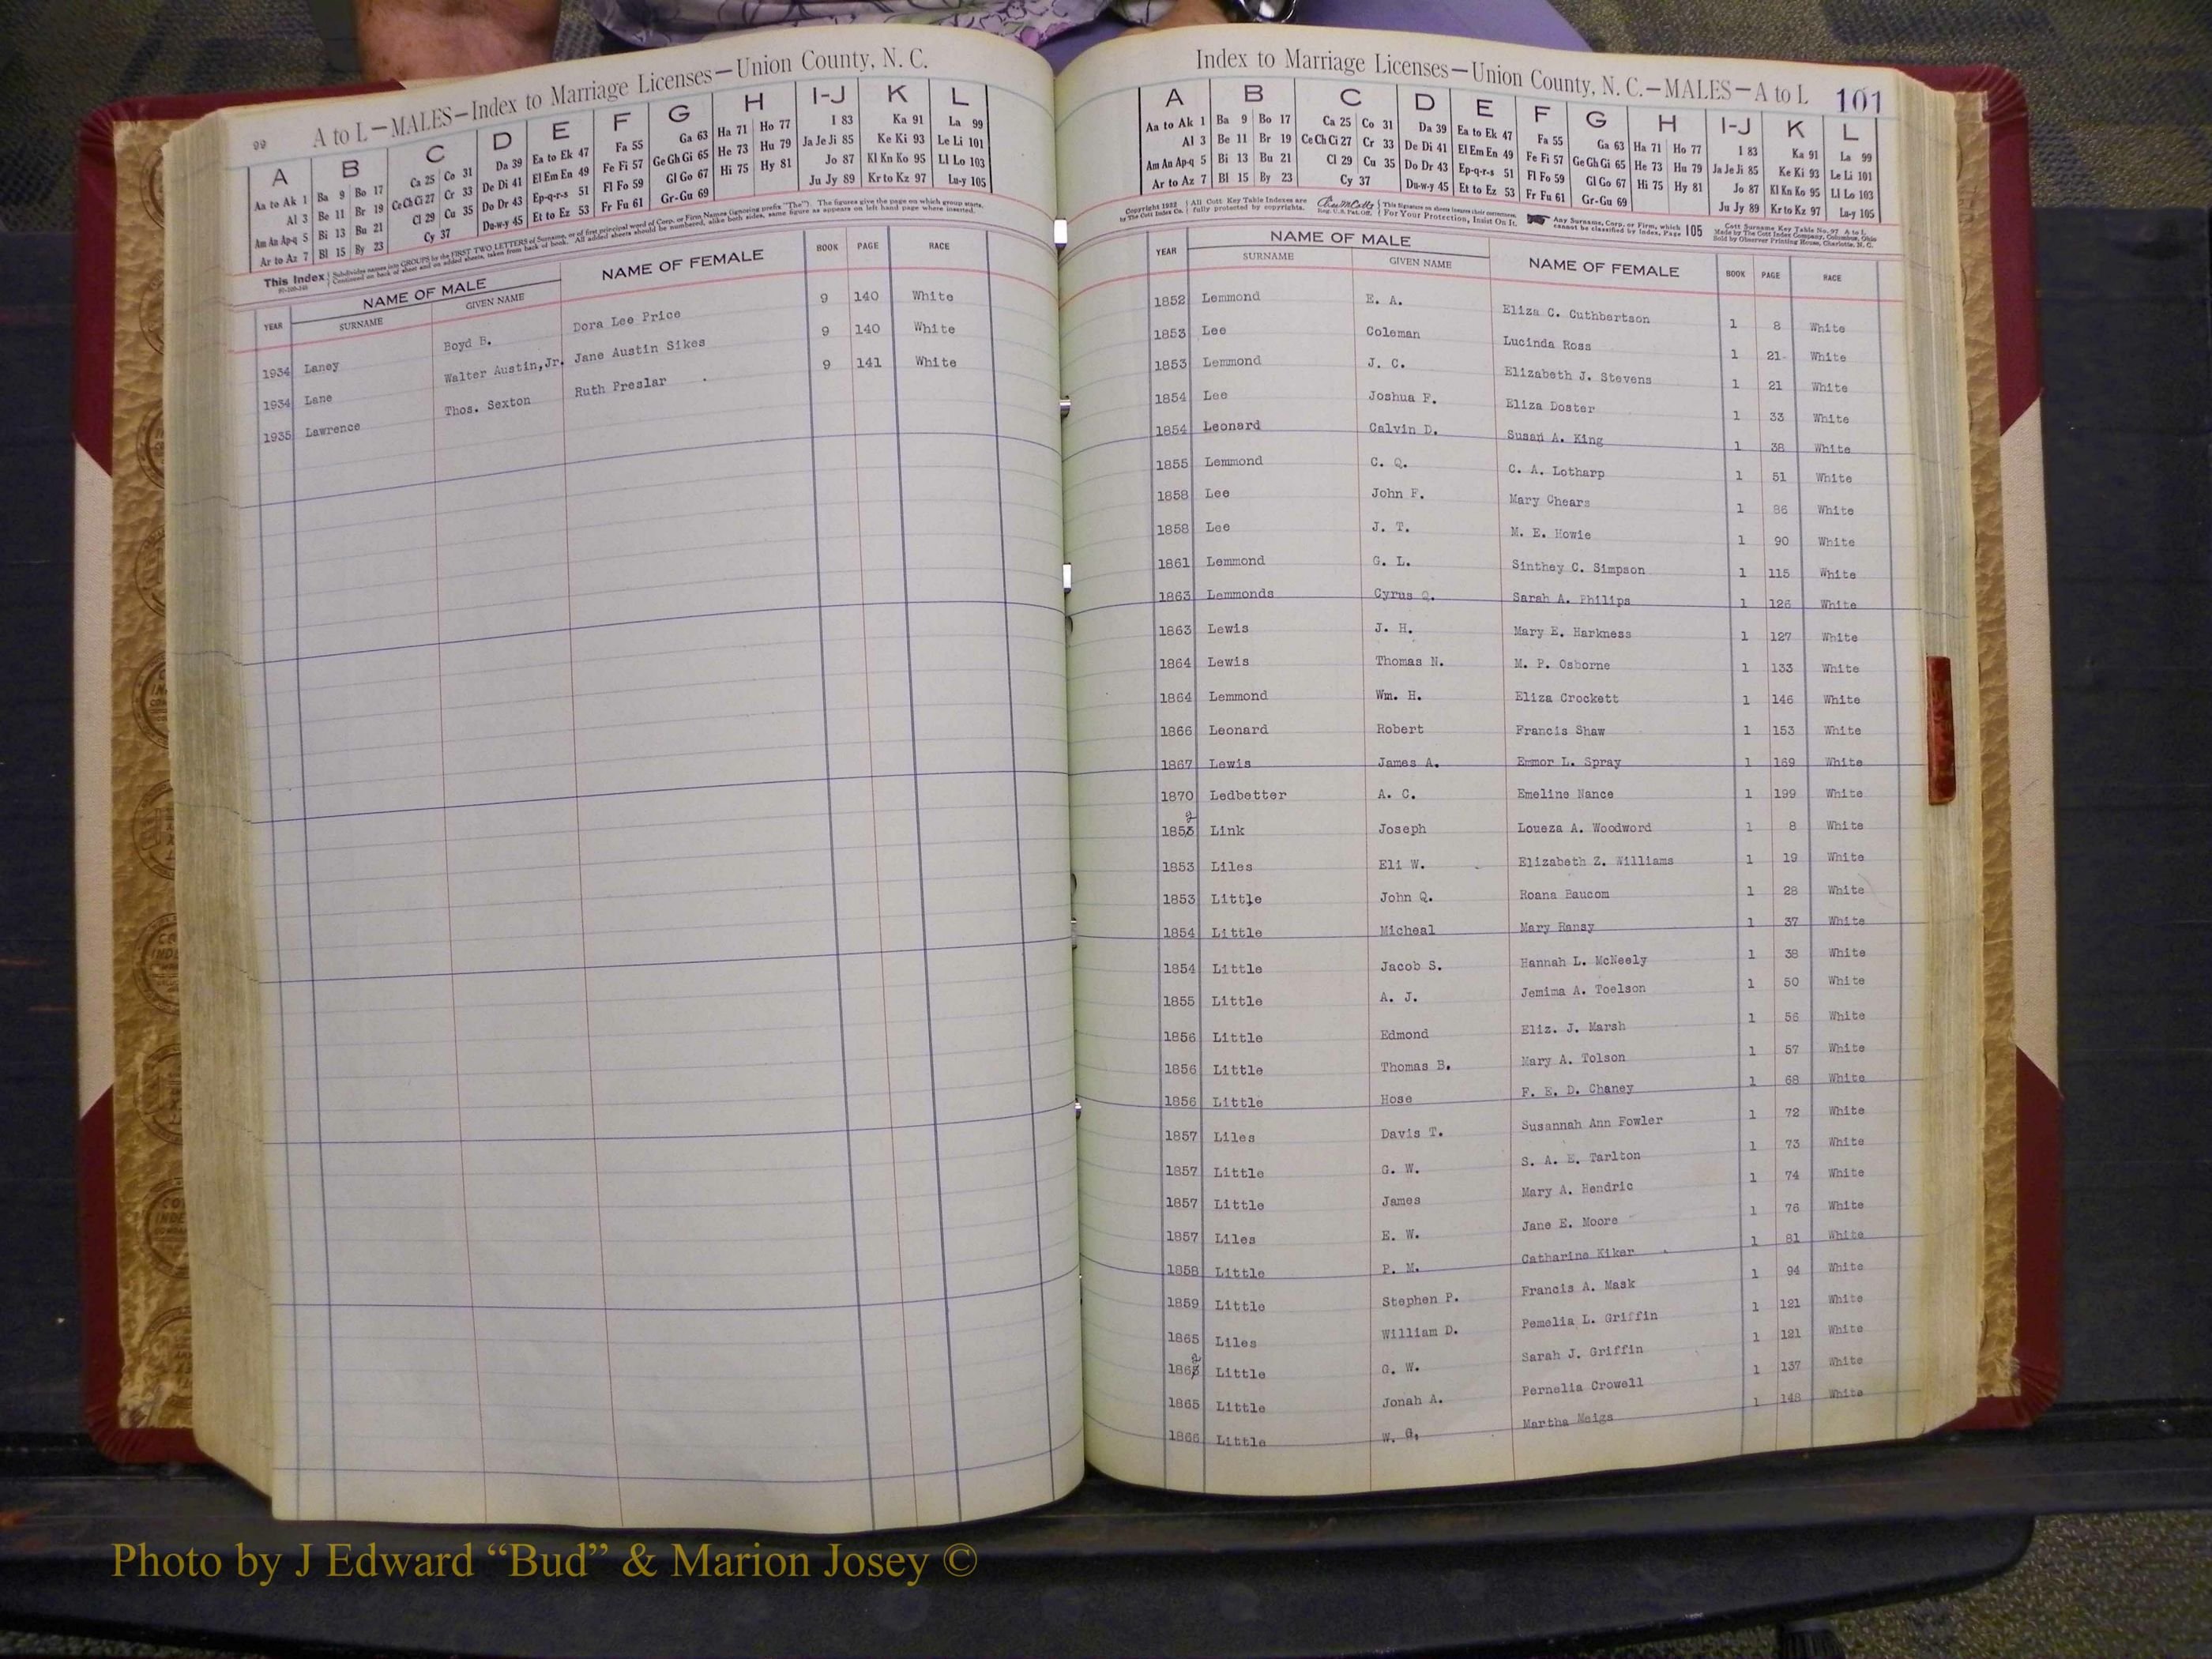 99 A to L—MALES—Index to Marriage Licenses—Union County, N. C.
A B C D E F G H I-J K L
Aa to Ak 1 Ba 9 Bo 17 Ca 25 Co 31 Da 39 Ea to Ek 47 Fa 55 Ga 63 Ha 71 Ho 77 I 83 Ka 91 La 99
Al 3 Be 11 Br 19 Ce Ch Ci 27 Cr 33 De Di 41 El Em En 49 Fe Fi 57 Ge Gh Gi 65 He 73 Hu 79 Ja Je Ji 85 Ke Ki 93 Le Li 101
Am An Ap-q 5 Bi 13 Bu 21 Cl 29 Cu 35 Do Dr 43 Ep-q-r-s 51 Fl Fo 59 Gl Go 67 Hi 75 Hy 81 Jo 87 Kl Kn Ko 95 Ll Lo 103
Ar to Az 7 Bl 15 By 23 Cy 37 Du-w-y 45 Et to Ez 53 Fr Fu 61 Gr-Gu 69 Ju Jy 89 Kr to Kz 97 Lu-y 105
This Index Subdivides names into GROUPS by the FIRST TWO LETTERS of Surname, or of first principal word of Corp. or Firm Names (ignoring prefix "The"). The figures give the page on which group starts.
Continued on back of sheet and on added sheets, taken from back of book. All added sheets should be numbered, alike both sides, same figure as appears on left hand page where inserted.
YEAR NAME OF MALE SURNAME GIVEN NAME NAME OF FEMALE BOOK PAGE RACE
1934 Laney Boyd B. Dora Lee Price 9 140 White
1934 Lane Walter Austin, Jr. Jane Austin Sikes 9 140 White
1935 Lawrence Thos. Sexton Ruth Preslar 9 141 White
Index to Marriage Licenses—Union County, N. C.—MALES—A to L 101
A B C D E F G H I-J K L
Aa to Ak 1 Ba 9 Bo 17 Ca 25 Co 31 Da 39 Ea to Ek 47 Fa 55 Ga 63 Ha 71 Ho 77 I 83 Ka 91 La 99
Al 3 Be 11 Br 19 Ce Ch Ci 27 Cr 33 De Di 41 El Em En 49 Fe Fi 57 Ge Gh Gi 65 He 73 Hu 79 Ja Je Ji 85 Ke Ki 93 Le Li 101
Am An Ap-q 5 Bi 13 Bu 21 Cl 29 Cu 35 Do Dr 43 Ep-q-r-s 51 Fl Fo 59 Gl Go 67 Hi 75 Hy 81 Jo 87 Kl Kn Ko 95 Ll Lo 103
Ar to Az 7 Bl 15 By 23 Cy 37 Du-w-y 45 Et to Ez 53 Fr Fu 61 Gr-Gu 69 Ju Jy 89 Kr to Kz 97 Lu-y 105
Copyright 1922 by The Cott Index Co. All Cott Key Table Indexes are fully protected by copyrights. Reg. U.S. Pat. Off. For Your Protection, Insist On It. Any Surname, Corp. or Firm, which cannot be classified by Index, Page 105 Cott Surname Key Table No. 97 A to L Made by The Cott Index Company, Columbus, Ohio Sold by Observer Printing House, Charlotte, N. C.
YEAR NAME OF MALE SURNAME GIVEN NAME NAME OF FEMALE BOOK PAGE RACE
1852 Lemmond E. A. Eliza C. Cuthbertson 1 8 White
1853 Lee Coleman Lucinda Ross 1 21 White
1853 Lemmond J. C. Elizabeth J. Stevens 1 21 White
1854 Lee Joshua F. Eliza Doster 1 33 White
1854 Leonard Calvin D. Susan A. King 1 38 White
1855 Lemmond C. Q. C. A. Lotharp 1 51 White
1858 Lee John F. Mary Chears 1 86 White
1858 Lee J. T. M. E. Howie 1 90 White
1861 Lemmond G. L. Sinthey C. Simpson 1 115 White
1863 Lemmonds Cyrus Q. Sarah A. Philips 1 126 White
1863 Lewis J. H. Mary E. Harkness 1 127 White
1864 Lewis Thomas N. M. P. Osborne 1 133 White
1864 Lemmond Wm. H. Eliza Crockett 1 146 White
1866 Leonard Robert Francis Shaw 1 153 White
1867 Lewis James A. Emmor L. Spray 1 169 White
1870 Ledbetter A. C. Emeline Nance 1 199 White
1852 Link Joseph Loueza A. Woodword 1 8 White
1853 Liles Eli W. Elizabeth Z. Williams 1 19 White
1853 Little John Q. Roana Baucom 1 28 White
1854 Little Micheal Mary Hansy 1 37 White
1854 Little Jacob S. Hannah L. McNeely 1 38 White
1855 Little A. J. Jemima A. Toelson 1 50 White
1856 Little Edmond Eliz. J. Marsh 1 56 White
1856 Little Thomas B. Mary A. Tolson 1 57 White
1856 Little Hose F. E. D. Chaney 1 68 White
1857 Liles Davis T. Susannah Ann Fowler 1 72 White
1857 Little G. W. S. A. E. Tarlton 1 73 White
1857 Little James Mary A. Hendric 1 74 White
1857 Liles E. W. Jane E. Moore 1 76 White
1858 Little P. M. Catharine Kiker 1 81 White
1859 Little Stephen P. Francis A. Mask 1 94 White
1865 Liles William D. Pemelia L. Griffin 1 121 White
1862 Little G. W. Sarah J. Griffin 1 121 White
1865 Little Jonah A. Pernelia Crowell 1 137 White
1866 Little W. G. Martha Meigs 1 148 White
Photo by J Edward “Bud” & Marion Josey ©